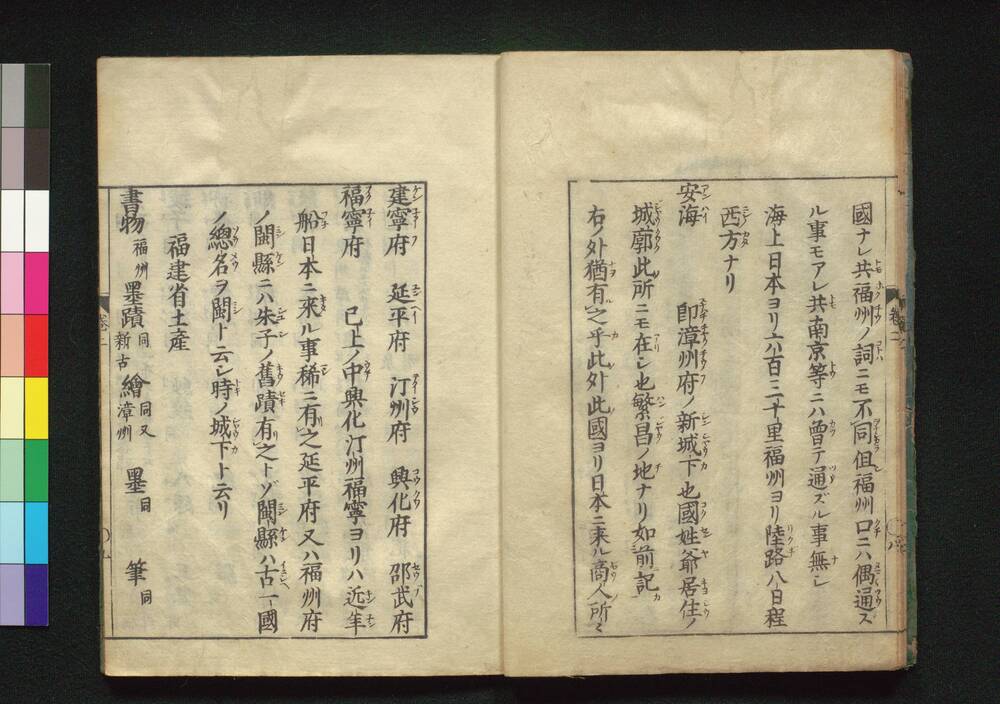 國ナレ共福州ノ詞ニモ不同但福州口ニハ偶通ズ
ル事モアレ共南京等ニハ曾テ通ズル事無シ
海上日本ヨリ六百三十里福州ヨリ陸路八日程
西方ナリ
安海 即漳州府ノ新城下也國姓爺居住ノ
城廓此所ニモ在シ也繁昌ノ地ナリ如前記
右ノ外猶有之乎此外此國ヨリ日本ニ來ル商人所々
建寧府 延平府 汀州府 興化府 邵武府
福寧府 已上ノ中興化汀州福寧ヨリハ近年
船日本ニ來ル事稀ニ有之延平府又ハ福州府
ノ閩縣ニハ朱子ノ舊蹟有之トゾ閩縣ハ古一國
ノ總名ヲ閩ト云シ時ノ城下ト云リ
福建省土産
書物福州 墨蹟同新古 繪同又漳州 墨同 筆同